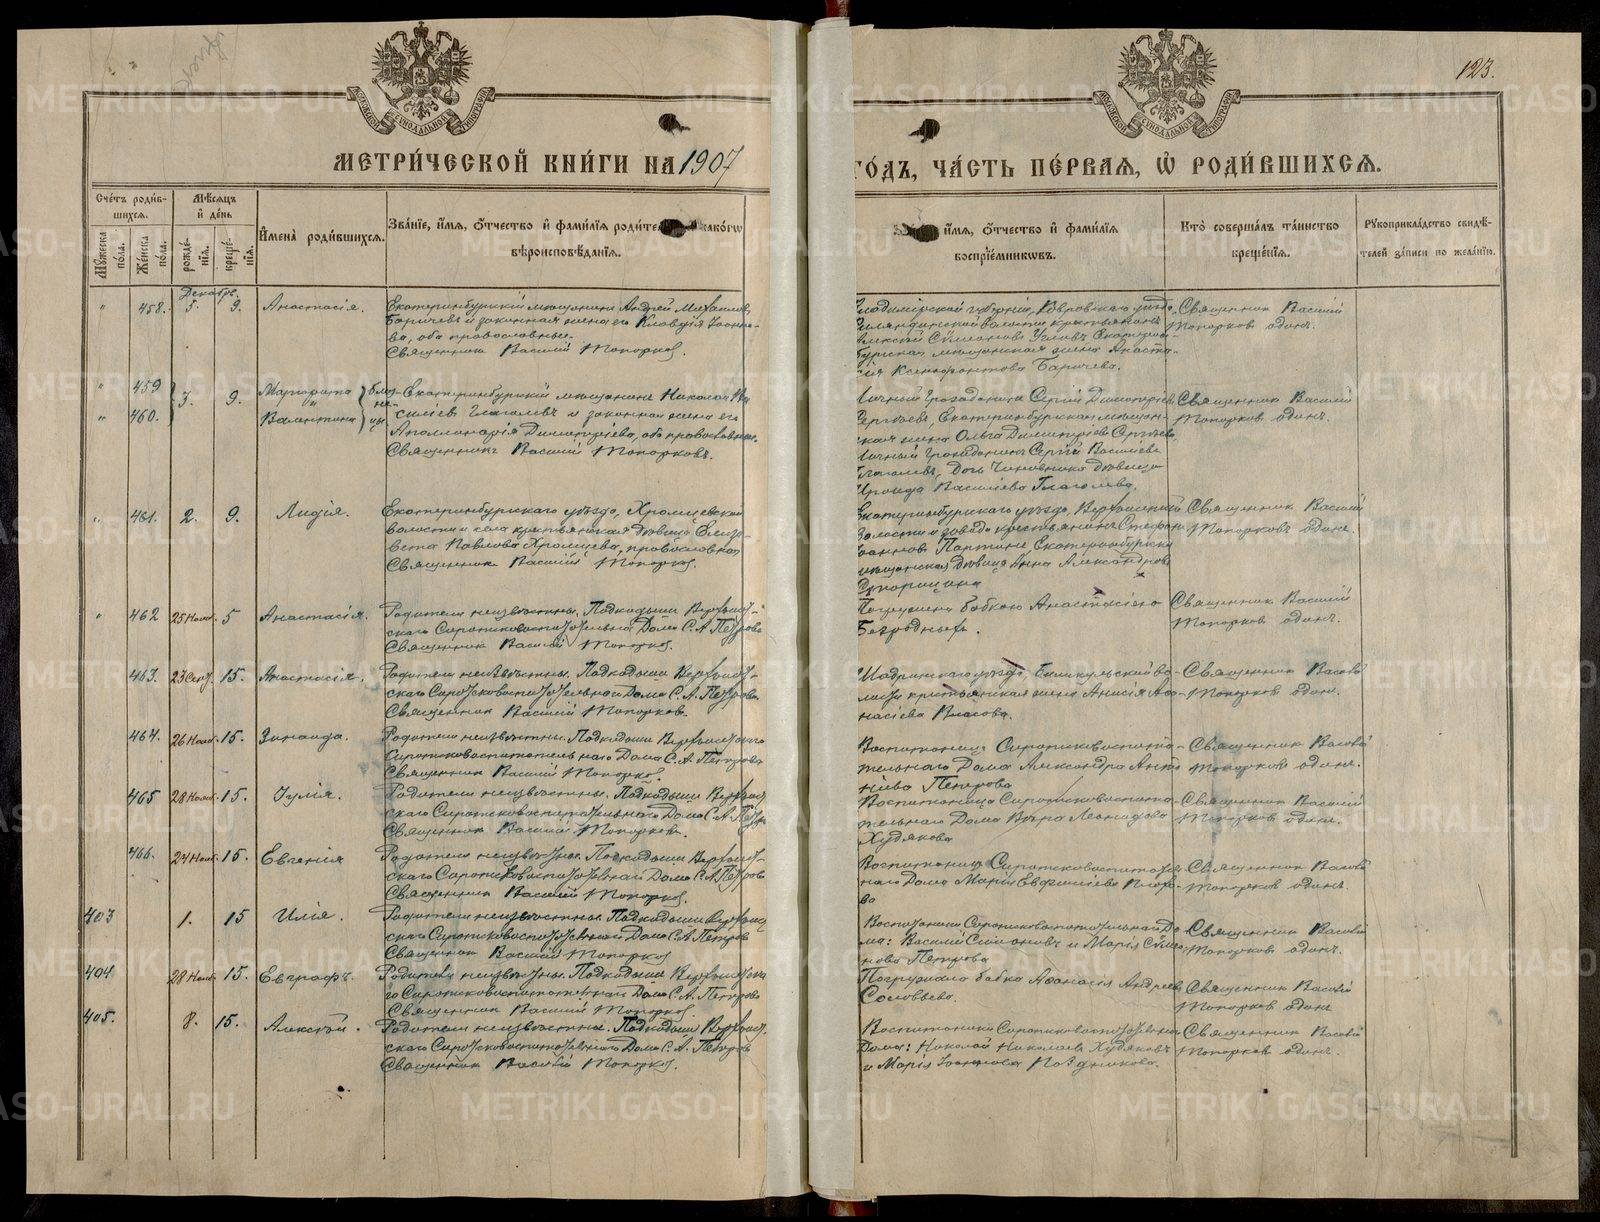 123.
МОСКОВСКОЙ СУНОДАЛЬНОЙ ТИПОГРАФІИ
МОСКОВСКОЙ СУНОДАЛЬНОЙ ТИПОГРАФІИ
МЕТРИ́ЧЕСКОЙ КНИ́ГИ НА 1907
ГО́ДЪ, ЧА́СТЬ ПЕ́РВАЯ, Ѡ҆ РОДИ́ВШИХСЯ.
Сче́тъ роди́в-
шихся.
Мꙋжеска по́ла.
Же́нска по́ла.
Мѣ́сяцъ и҆ де́нь
рожде́-
нїя.
креще́-
нїя.
И҆мена̀ роди́вшихся.
Зва́нїе, и҆́мя, ѻ҆́тчество и҆ фами́лїя роди́те како́гѡ
вѣроисповѣ́данїя.
и҆́мя, ѻ҆́тчество и҆ фами́лїя
воспрїе́мникѡвъ.
Кто̀ соверша́лъ та́инство
креще́нїя.
Рꙋкоприкла́дство свидѣ́-
телей за́писи по жела́нїю.
Декабрь.
" 458. 5. 9. Анастасія.
Екатеринбургскій мѣщанинъ Андрей Михаиловъ
Баричевъ и законная жена его Клавдія Іоано-
ва, оба православные.
Священник Василій Топорков.
Владимірской губерніи, Ковровскаго уѣзда
волости крестьянинъ
Алексѣй Сумеоновъ Екатерин-
бургская мѣщанская жена Анаста-
сія Ксенофонтова Баричева.
Священник Василій
Топорков один.
" 459
" 460.
3. 9.
Маргарита
Валентина
близ-
не-
цы
Екатеринбургскій мѣщанинъ Николай Ва
силіев Глаголевъ и законная жена его
Аполлинарія Димитріева, оба православные.
Священникъ Василій Топорковъ.
Личный гражданинъ Сергій Димитріев
Сергѣевъ, Екатеринбургская мѣщан-
ская жена Ольга Димитріева Сергѣева,
Личный гражданинъ Сергій Василіевъ
Глаголевъ, Дочь Чиновника дѣвица
Ираида Василіева Глаголева.
Священник Василій
Топорков один.
" 461. 2. 9. Лидія.
Екатеринбургскаго уѣзда, Хромцевской
волости и села крестьянская дѣвица Елиза-
вета Павлова Хромцева, православная
Священник Василій Топорков.
Екатеринбургскаго уѣзда, Верхисетской
волости и завода крестьянинъ Стефан
Іоаннов Партинъ, Екатеринбургская
мѣщанская дѣвица Анна Александрова
Священник Василій
Топорковъ одинъ.
" 462 25 Нояб. 5 Анастасія.
Родители неизвѣстны. Подкидыши Верхисет-
скаго Сиропиковоспитательнаго Дома С. А. Петрова
Священник Василій Топорков.
Погружена бабкою Анастасіею
Безродныхъ.
Священник Василій
Топорков один.
463. 23 Сент. 15. Анастасія.
Родители неизвѣстны. Подкидыши Верхисет-
скаго Сиропсковоспитательнаго Дома С. А. Петрова.
Священник Василій Топорков.
Шадринскаго уѣзда, во-
лости крестьянская жена Анисія Аѳа-
насіева Власова.
Священник Василій
Топорков один.
464. 26 Нояб. 15. Зинаида.
Родители неизвѣстны. Подкидыши Верхисетскаго
Сиропиковоспитательнаго Дома С. А. Петрова
Священник Василій Топорков.
Воспитанница Сиропиковоспита-
тельнаго Дома Александра Анто
ніева Петрова
Священник Василій
Топорков один.
465 28 Нояб. 15. Іулія.
Родители неизвѣстны. Подкидыши Верхисет
скаго Сиропиковоспитательнаго Дома С. А. Петр
Священник Василій Топорков.
Воспитанница Сиропиковоспита-
тельнаго Дома Вѣра Леонидова
Худякова
Священник Василій
Топорков один.
466. 24 Нояб. 15. Евгенія
Родители неизвѣстны. Подкидыши Верхисет-
скаго Сиропиковоспитательнаго Дома С. А. Петрова
Священник Василій Топорков.
Воспитанница Сиропиковоспитатель
наго Дома Марія Евфиміева
ва
Священник Василій
Топорков один.
403 1. 15 Илія.
Родители неизвѣстны. Подкидыши Верхисет
скаго Сиропиковоспитательнаго Дома С. А. Петрова
Священник Василій Топорков
Воспитанники Сиропиковоспитательнаго До
ма: Василій Симоновъ и Марія Сумео
нова Петрова
Священник Василій
Топорков один.
404 28 Нояб. 15. Евграфъ.
Родители неизвѣстны. Подкидыши Верхисетска
го Сиропиковоспитательнаго Дома С. А. Петрова
Священник Василій Топорков
Погружала бабка Аѳанасія Андреева
Соловьева.
Священник Василій
Топорков один
405. 8. 15. Алексѣй.
Родители неизвѣстны. Подкидыши Верхисет.
скаго Сиропсковоспитательнаго Дома С. А. Петрова
Священник Василій Топорков.
Воспитанники Сиропиковоспитательна
Дома: Николай Николаев Худяковъ
и Марія Іоаннова Позднякова.
Священник Василій
Топорков один.
METRIKI.GASO-URAL.RU